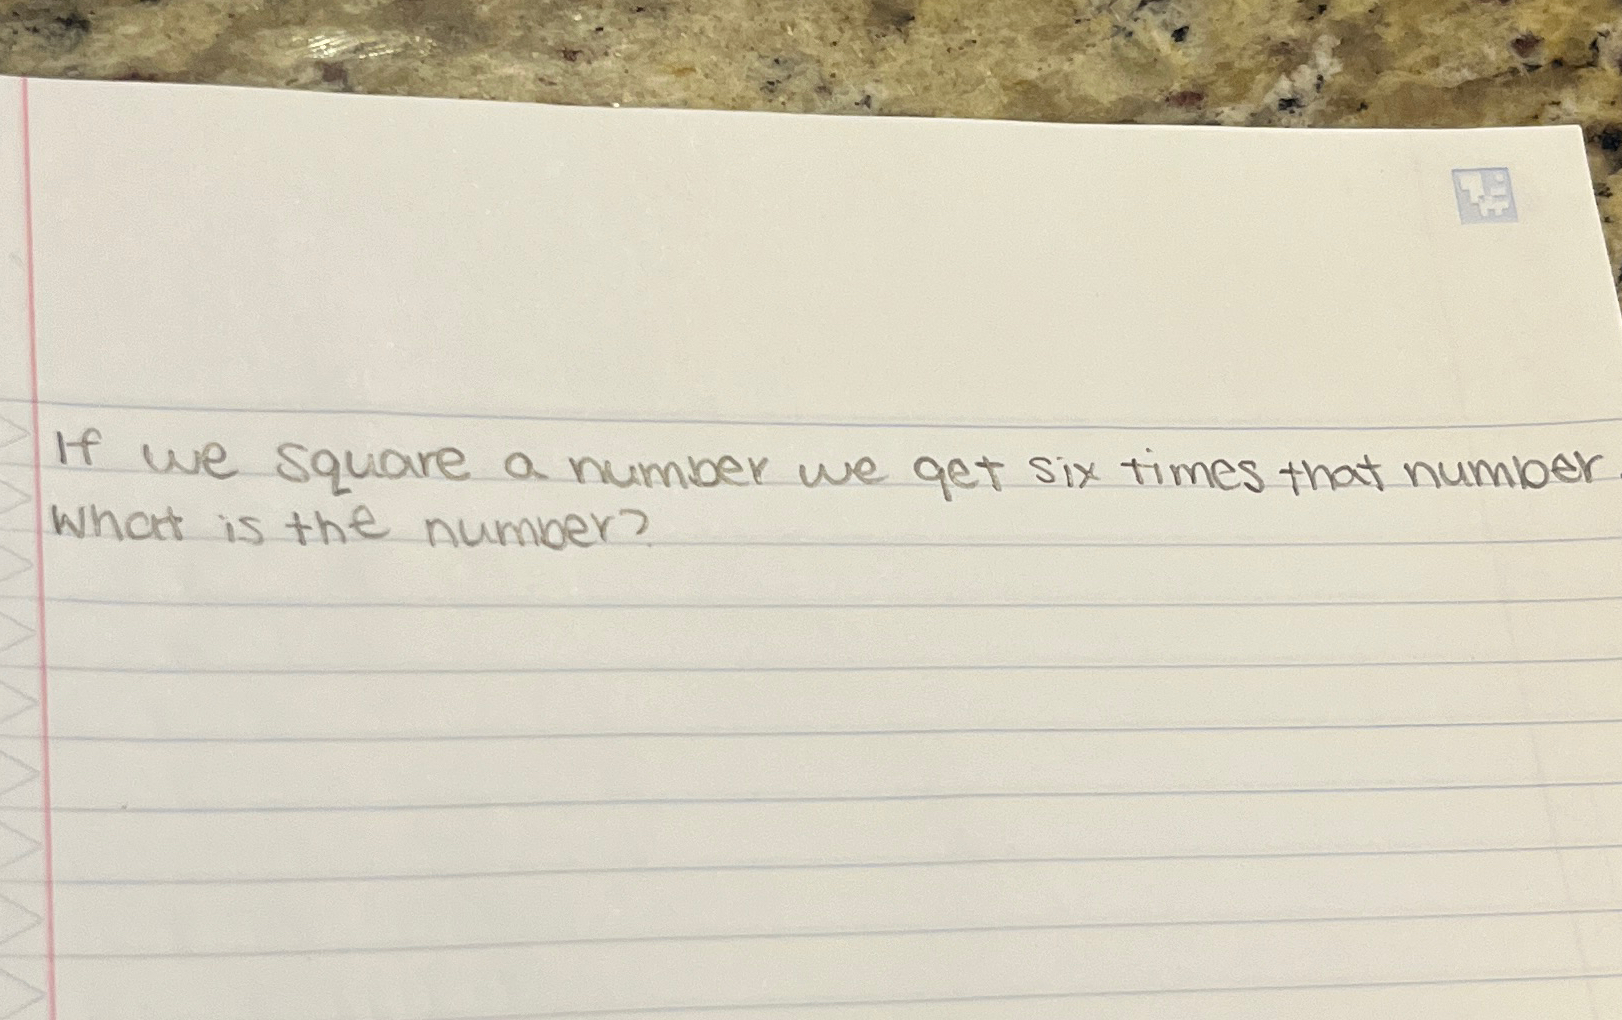 If we square a number we get six times that number
What is the number?